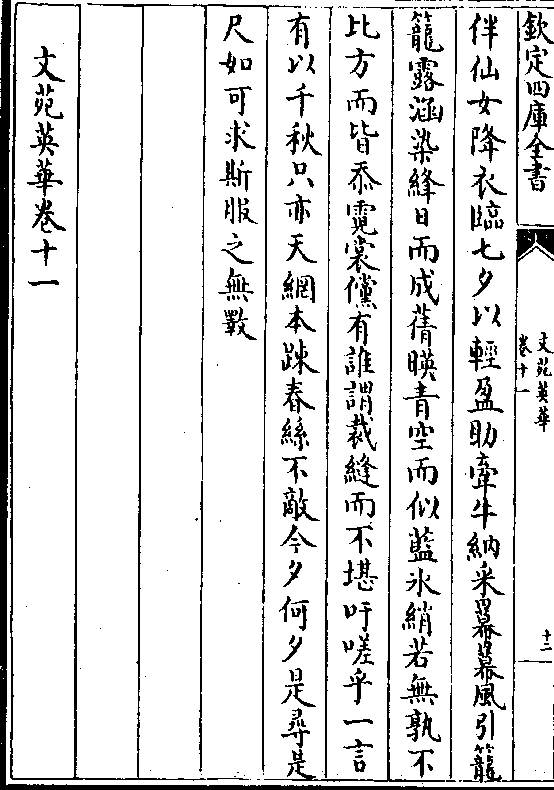 欽定四庫全書
文苑英華
卷十一
十二
伴仙女降衣臨七夕以輕盈助牽牛納采冪冪風引籠
籠露涵染絳日而成蒨暎青空而似藍氷綃若無孰不
比方而皆忝霓裳儻有誰謂裁縫而不堪吁嗟乎一言
有以千秋只亦天網本踈春絲不敵今夕何夕是尋是
尺如可求斯服之無斁
文苑英華卷十一